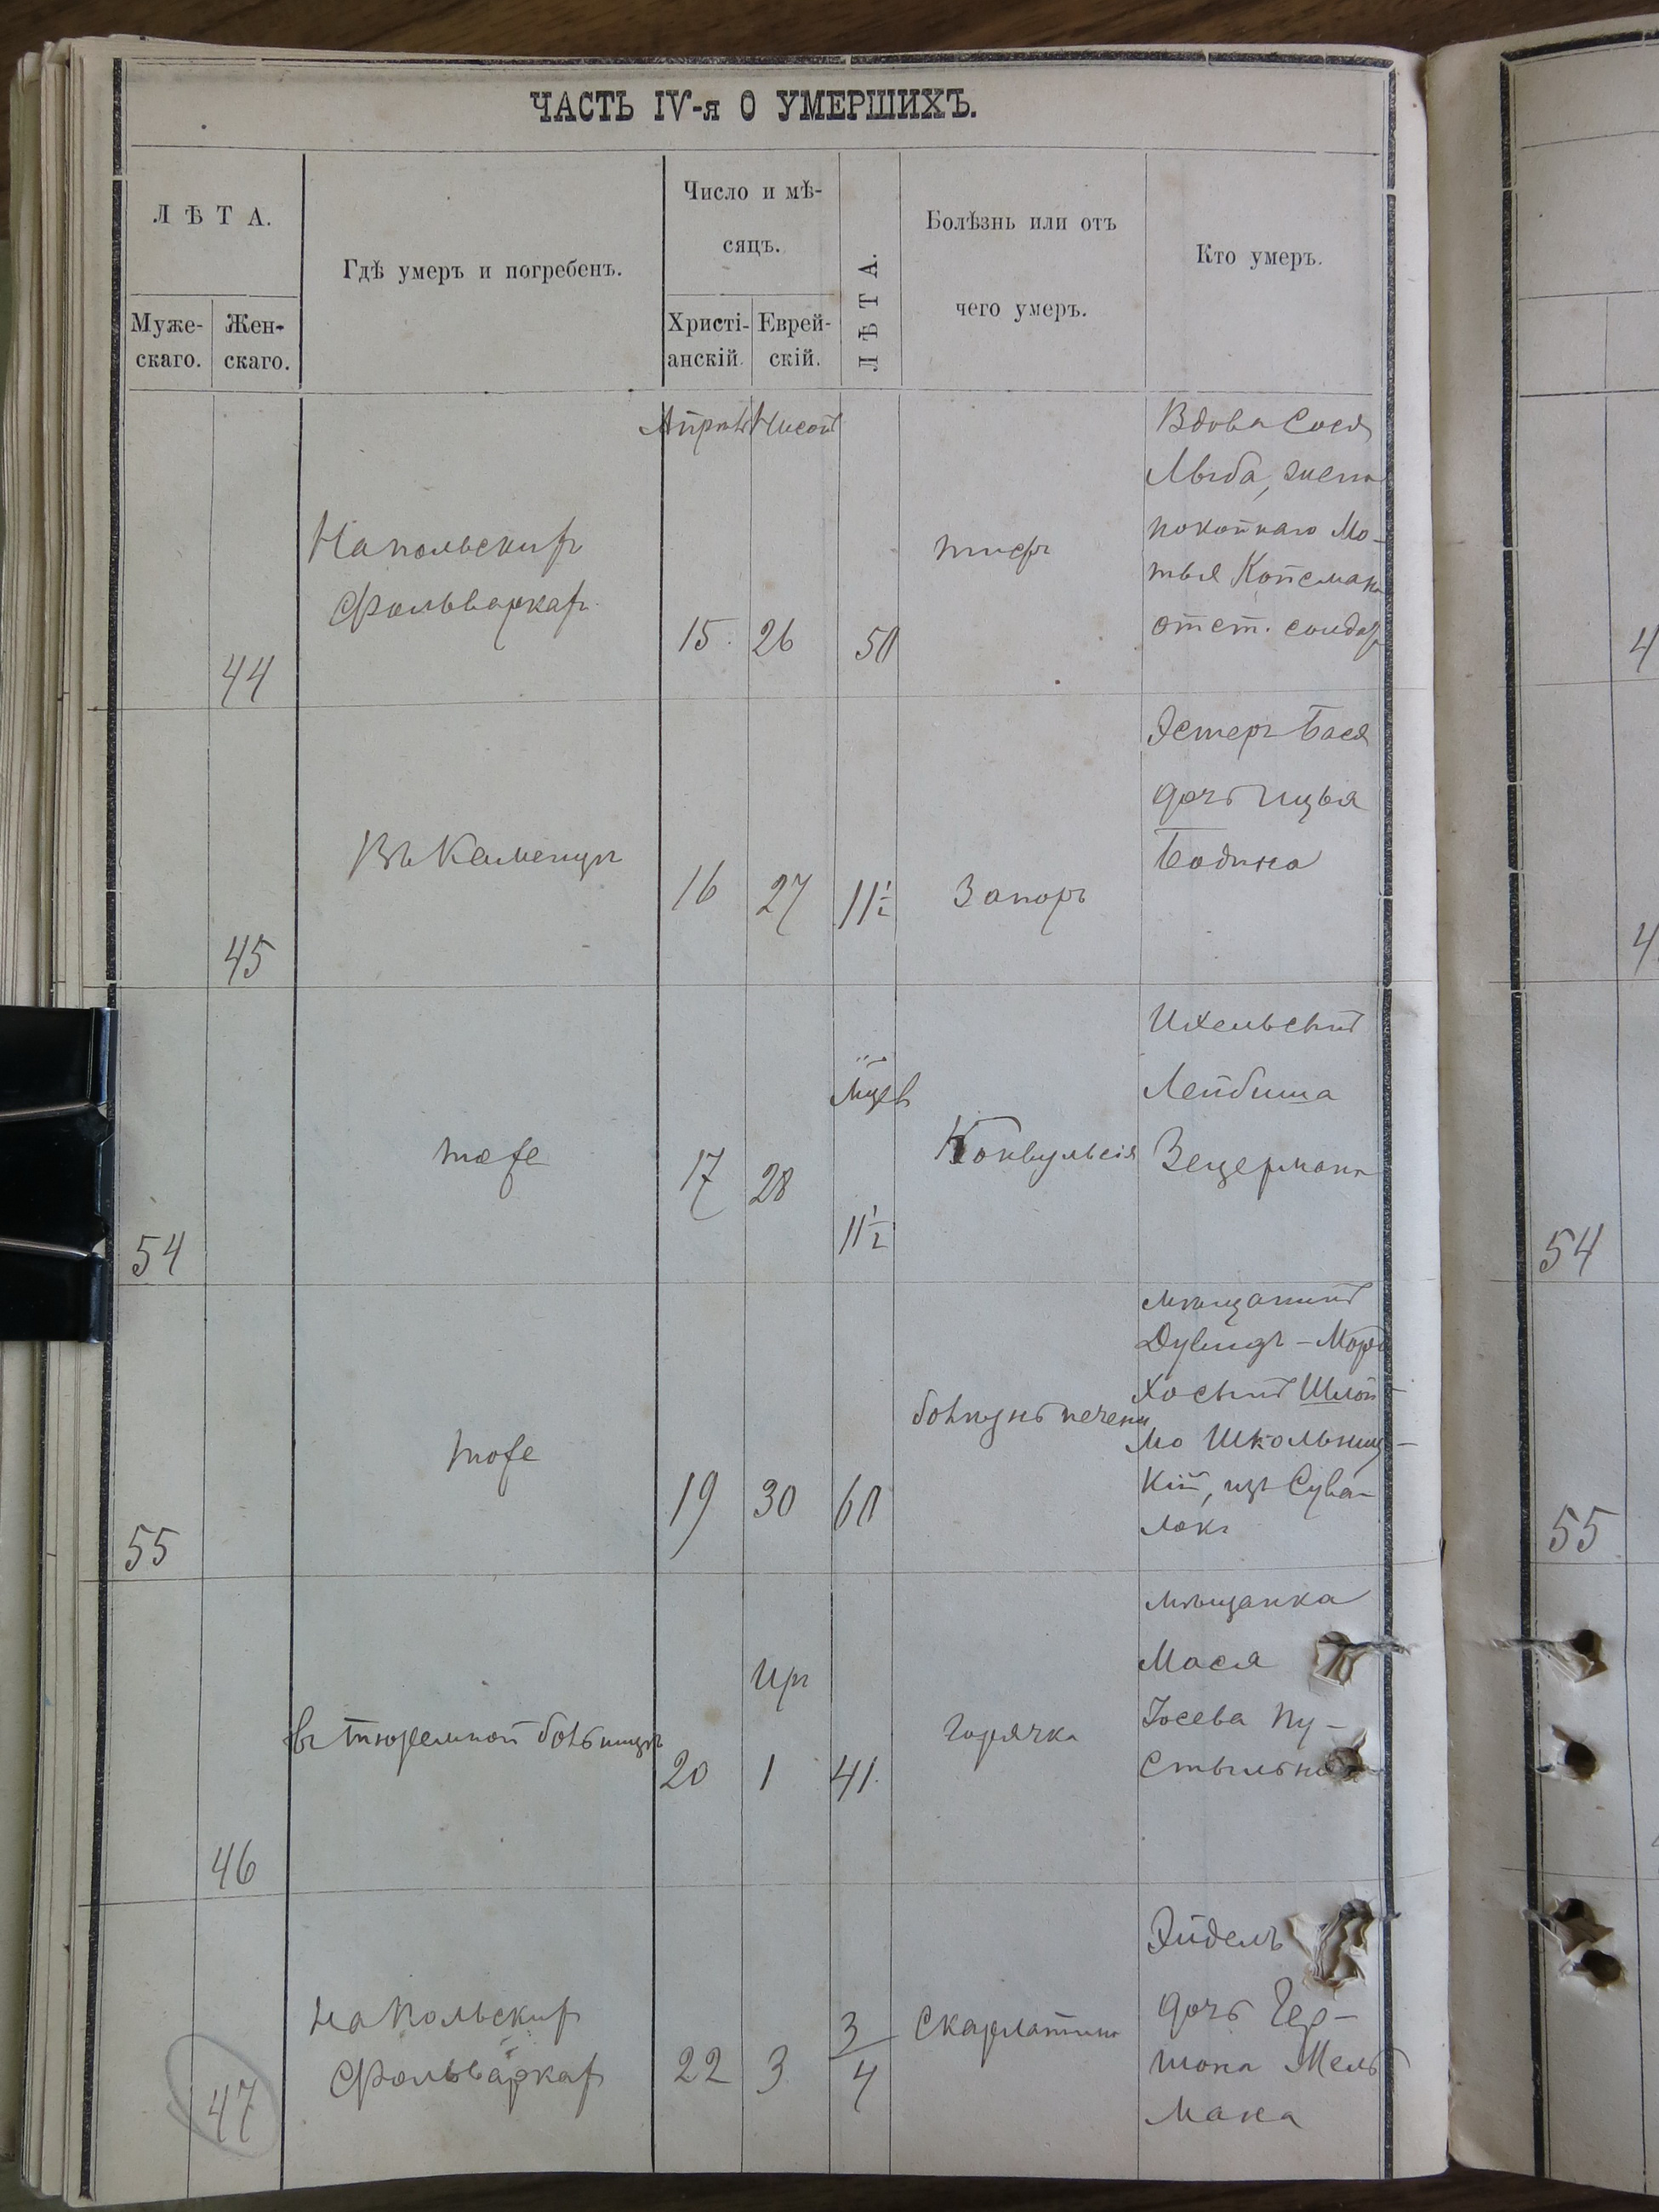 ЧАСТЬ IV-я О УМЕРШИХЪ.
ЛѢТА.
Муже-
скаго.
Жен-
скаго.
Гдѣ умеръ и погребенъ.
Число и мѣ-
сяцъ.
Христі-
анскій.
Еврей-
скій.
ЛѢТА.
Болѣзнь или отъ
чего умеръ.
Кто умеръ.
44
На польскихъ
фольваркахъ
Апрѣль
15
Нисонъ
26
50
тифъ
Вдова Сося
Лыба, жена
покойнаго Мо-
тыя
отст. солдат
45
Въ Каменцѣ
16
27
11½
Запоръ
Эстеръ Бася
дочь Ицъя
54
тоже
17
28
Мцев
11½
Конвульсія
Ихельсынъ
Лейбиша
Зецермана
55
тоже
19
30
60
болѣзнь печени
мѣщанинъ
Дувидъ-Морд
Хосынъ Шлой-
мо Школьниц-
кій, изъ Сува-
локъ
46
въ тюремной больницѣ
20
Iръ
1
41
горячка
мѣщанка
Мася
Іосева Пу-
47
на Польскихъ
фольваркахъ
22
3
3/4
Скарлатина
Эйдель
дочь Гер-
шона Мель
мана
4
4
54
55